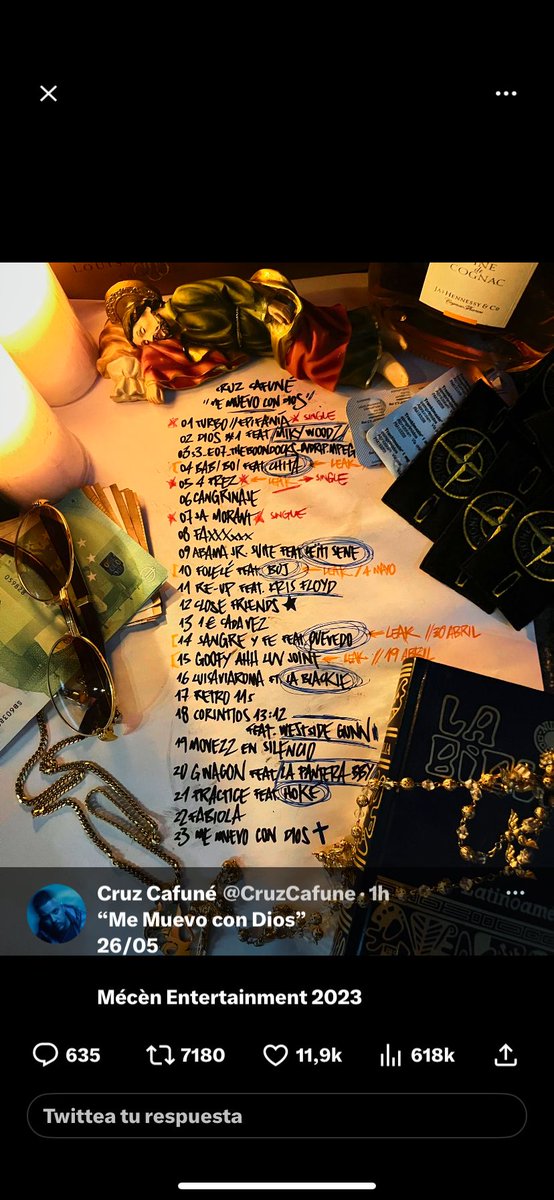 LOUIS
COGNAC
JAS HENNESSY & CO
CRUZ CAFUNÉ
"ME MUEVO CON DIOS"
01 TURBO // EPIFANÍA SINGLE
02 DIOS #1 FEAT MIKY WOODZ
03 S3.E07.THEBOONDOCKS
04 FEAT. LEAK
05 4 PREZ LEAK SINGLE
06 CANGRINAJE
07 JA MORANT SINGLE
08 FAXXXxxx
09 ABAMA JR. SUITE FEAT. SENE
10 FOLELÉ FEAT. BOJ LEAK // 4 MAYO
11 RE-UP FEAT. KRIS FLOYD
12 CLOSE FRIENDS ★
13 1€ CADA VEZ
14 SANGRE Y FE FEAT. QUEVEDO LEAK // 30 ABRIL
15 GOOFY AHH LUV JOINT LEAK // 19 ABRIL
16 LUISAVIAROMA FT LA BLACKIE
17 RETRO 11s
18 CORINTIOS 13:12
FEAT. WESTSIDE GUNN
19 MOVEZZ EN SILENCIO
20 G WAGON FEAT. LA PANTERA BBY
21 PRACTICE FEAT HOKE
22 FABIOLA
23 ME MUEVO CON DIOS ✝
LA
Latinoam
Cruz Cafuné @CruzCafune · 1h
“Me Muevo con Dios”
26/05
Mécèn Entertainment 2023
635 7180 11,9k 618k
Twittea tu respuesta